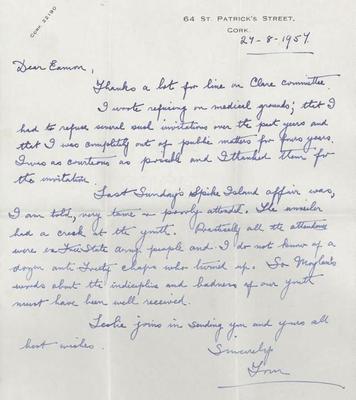 CORK 22190
64 ST. PATRICK'S STREET,
CORK.
27-8-1957
Dear Eamon,
Thanks a lot for line on Clare committee.
I wrote refusing on medical grounds; that I
had to refuse several such invitations over the past years and
that I was completely out of public matters for years.
I was as courteous as possible and I thanked them for
the invitation.
Last Sunday's Spike Island affair was,
I am told, very tame & poorly attended. The unveiler
had a crack at the youth. Practically all the attendance
were ex Free State army people and I do not know of a
dozen anti Treaty chaps who turned up. So Moylan's
words about the indiscipline and badness of our youth
must have been well received.
Leslie joins in sending you and yours all
best wishes.
Sincerely
Tom